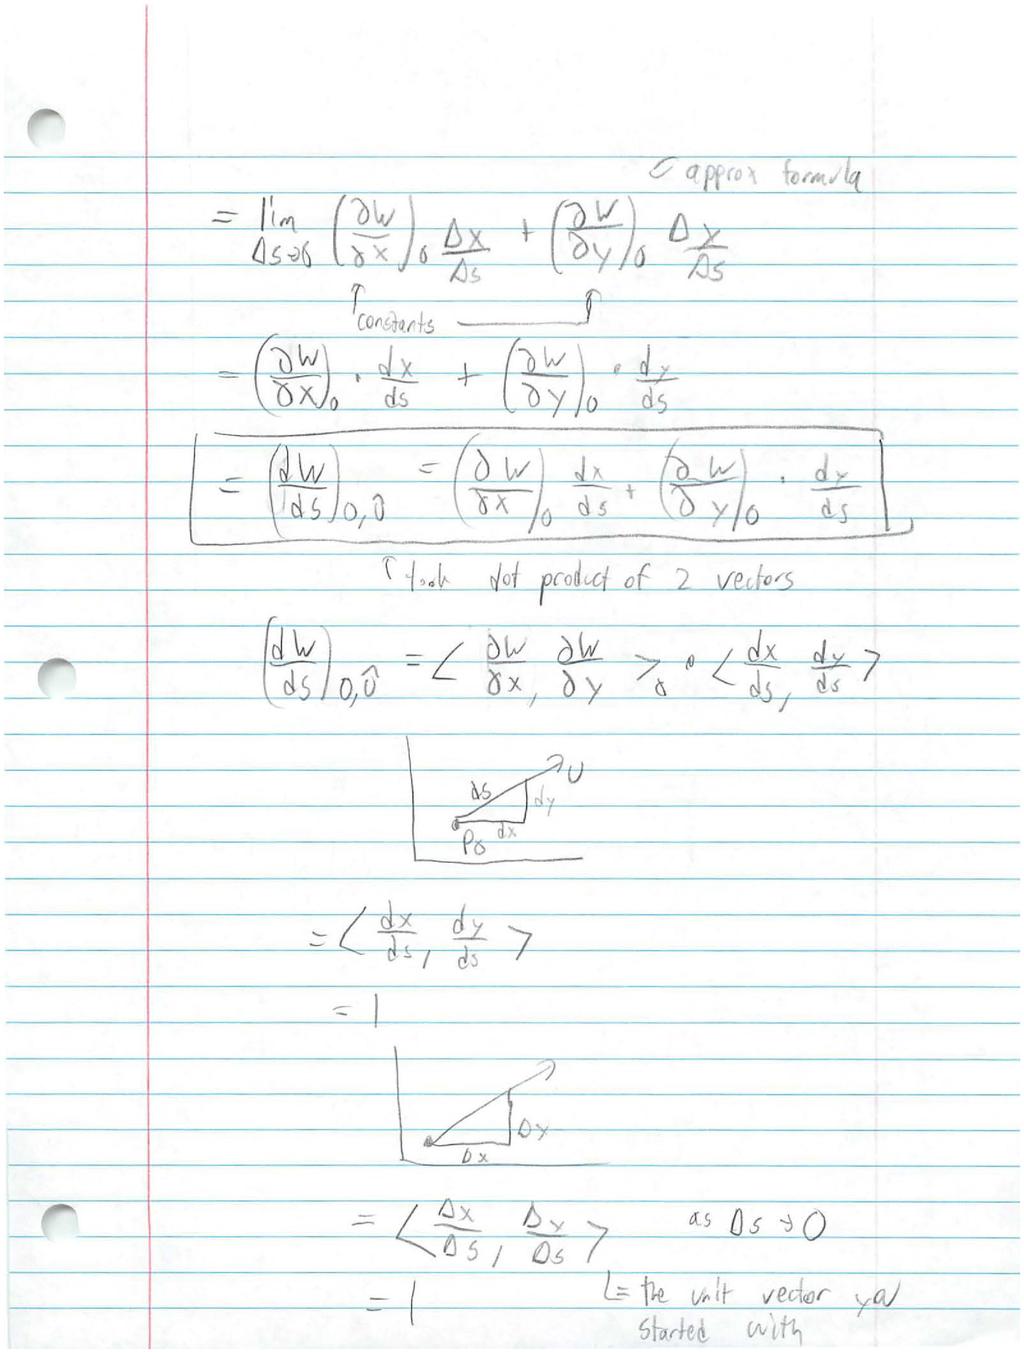 ⇐ approx formula
= lim Δs→0 (∂W/∂x)₀ Δx/Δs + (∂W/∂y)₀ Δy/Δs
↑ constants ↑
= (∂W/∂x)₀ · dx/ds + (∂W/∂y)₀ · dy/ds
= (dW/ds)₀,û = (∂W/∂x)₀ dx/ds + (∂W/∂y)₀ · dy/ds
↑ took dot product of 2 vectors
(dW/ds)₀,û = < ∂W/∂x, ∂W/∂y >₀ · < dx/ds, dy/ds >
ds U
dy
P₀ dx
= < dx/ds, dy/ds >
= 1
Δy
Δx
= < Δx/Δs, Δy/Δs > as Δs → 0
= 1 ∟= the unit vector you
started with